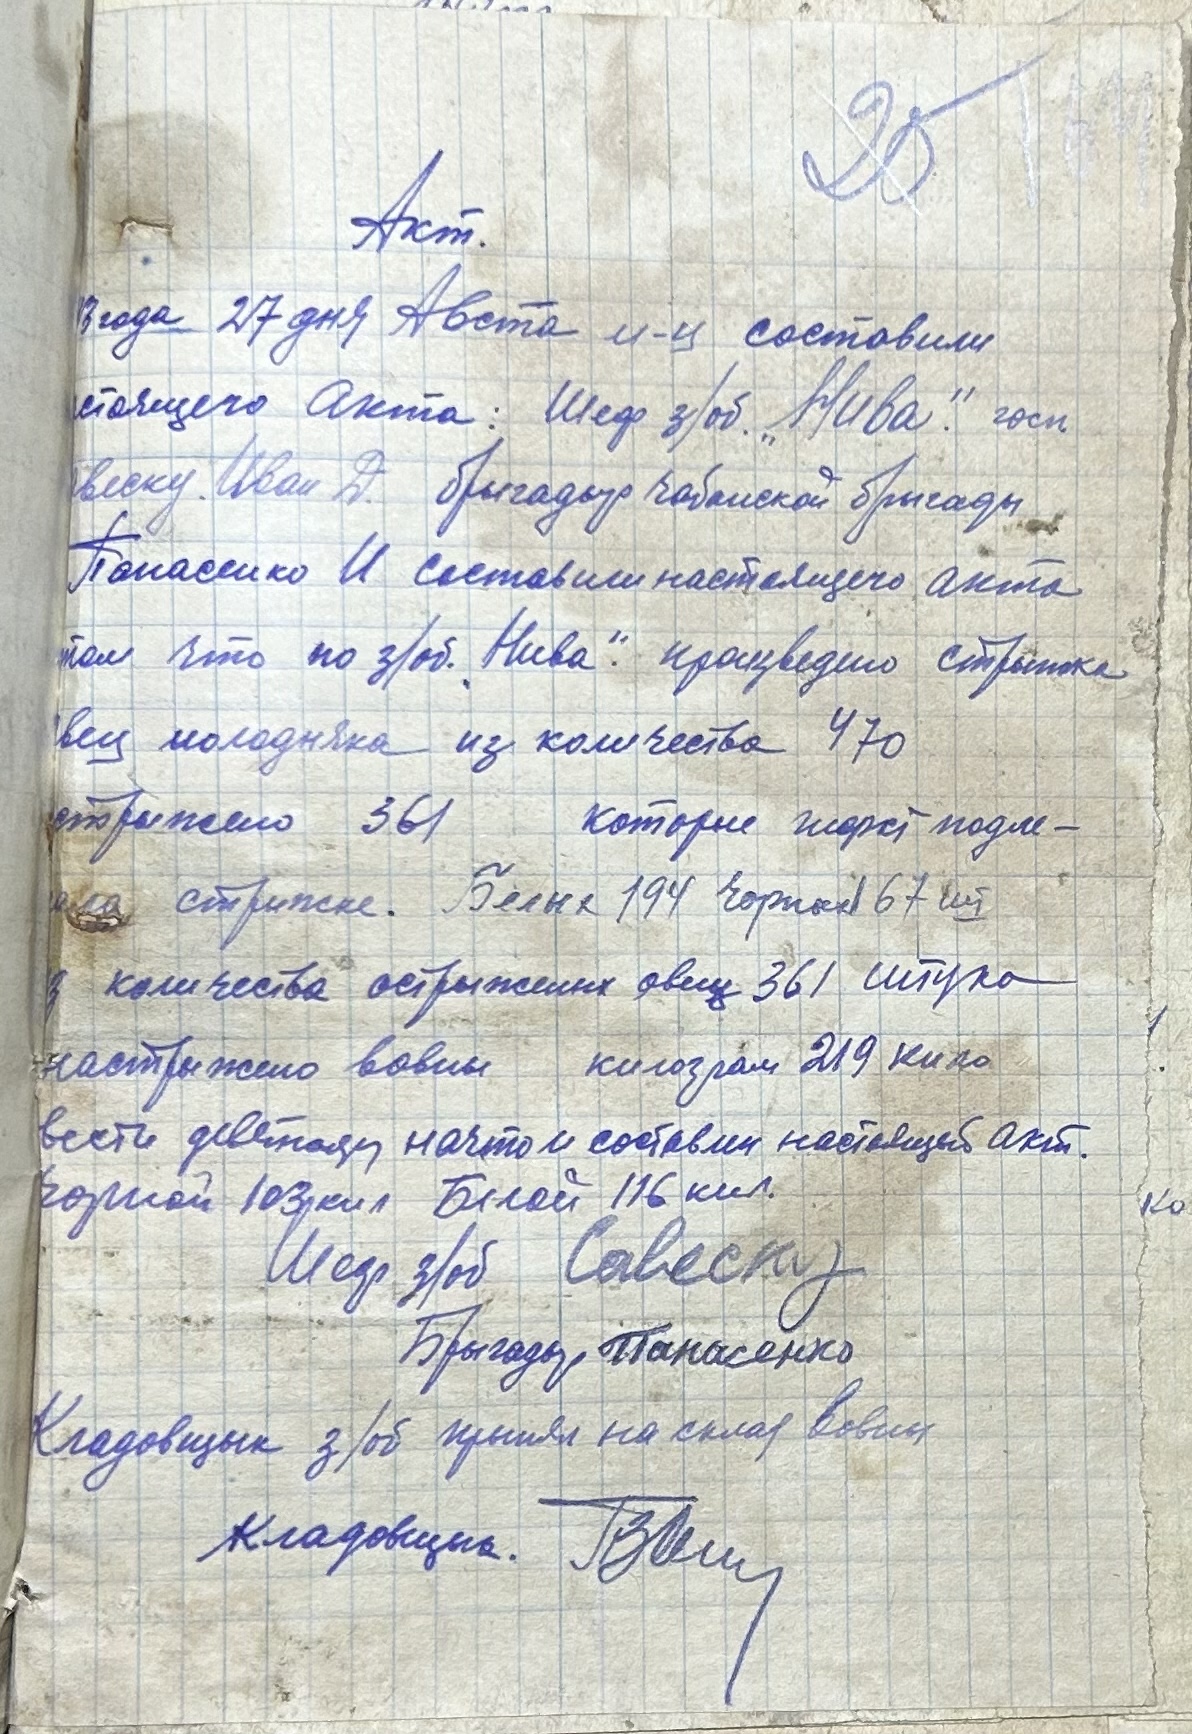 25
Акт.
3 года 27 дня Авста м-ц составили
стоящего Акта: Шеф з/об. „Нива." госп.
веску. Иван Д. бригадыр чабанской бригады
Панасенко И составили настоящего акта
том что по з/об. „Нива". произведено стрыжка
вец молодняка из количества 470
стрыжено 361 которые подле-
ла стрыжке. Белых 194 Чорных 167 шт
з количества острыженых овец 361 штука
настрыжено вовны килограм 219 кило
вести девятнацу на что и составили настоящей акт.
Чорной 103 кил Белой 116 кил.
Шеф з/об Савеску
Брыгадыр Панасенко
Кладовщык з/об прынял на склад Вовны
Кладовщык.